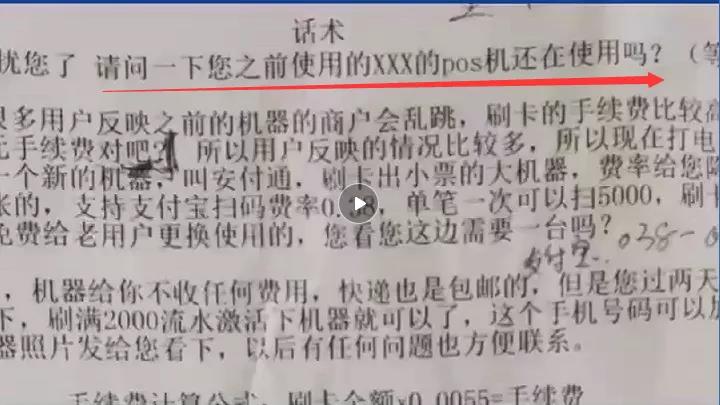 话术
扰您了 请问一下您之前使用的XXX的pos机还在使用吗？（等
很多用户反映之前的机器的商户会乱跳，刷卡的手续费比较高
元手续费对吧？ 所以用户反映的情况比较多，所以现在打电
一个新的机器，叫安付通，刷卡出小票的大机器，费率给您降
张的，支持支付宝扫码费率0. 8，单笔一次可以扫5000，刷卡
免费给老用户更换使用的，您看您这边需要一台吗？ 038-0
支付宝..
，机器给你不收任何费用，快递也是包邮的，但是您过两天
下，刷满2000流水激活下机器就可以了，这个手机号码可以加
器照片发给您看下，以后有任何问题也方便联系。
手续费计算公式：刷卡金额x0.0055=手续费